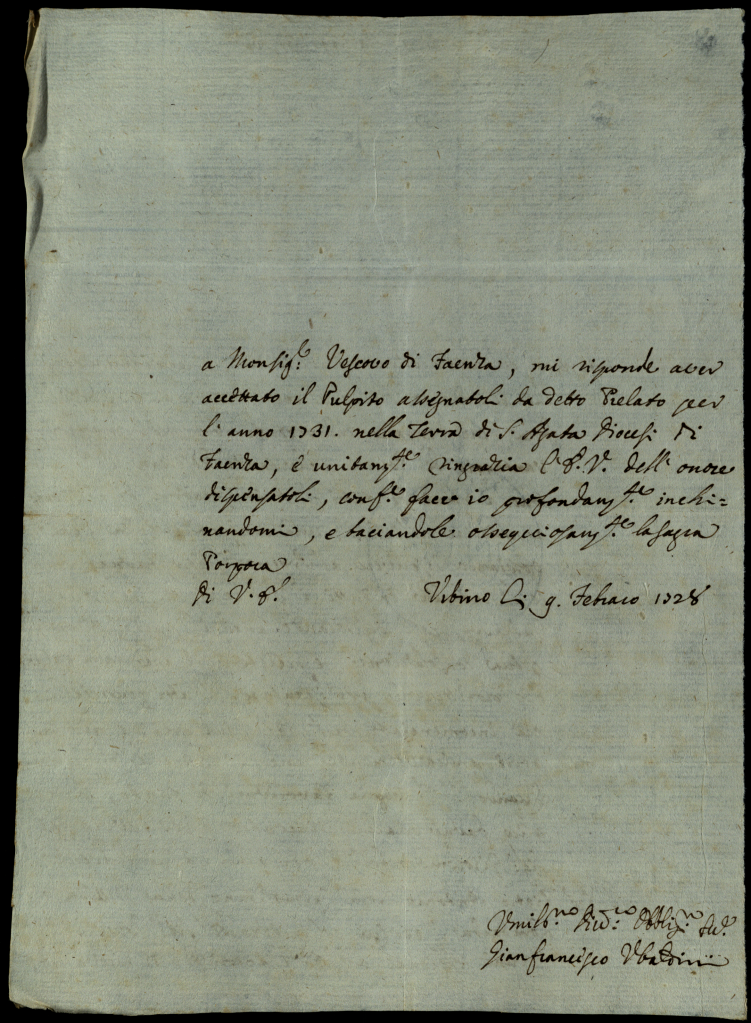 a Monsig.e Vescovo di Faenza, mi risponde aver
accettato il Pulpito assegnatoli da detto Prelato per
l'anno 1731. nella Terra di S. Agata Diocesi di
Faenza, e unitam.te ringrazia l'E.V. dell'onore
dispensatoli, conf.e faccio io profondam.te inchi=
nandomi, e baciandole ossequiosam.te la sagra
Porpora
di V.E. Urbino li 9. Febraro 1728
Umiliss.mo Obblig.mo
Gianfrancesco Ubaldini